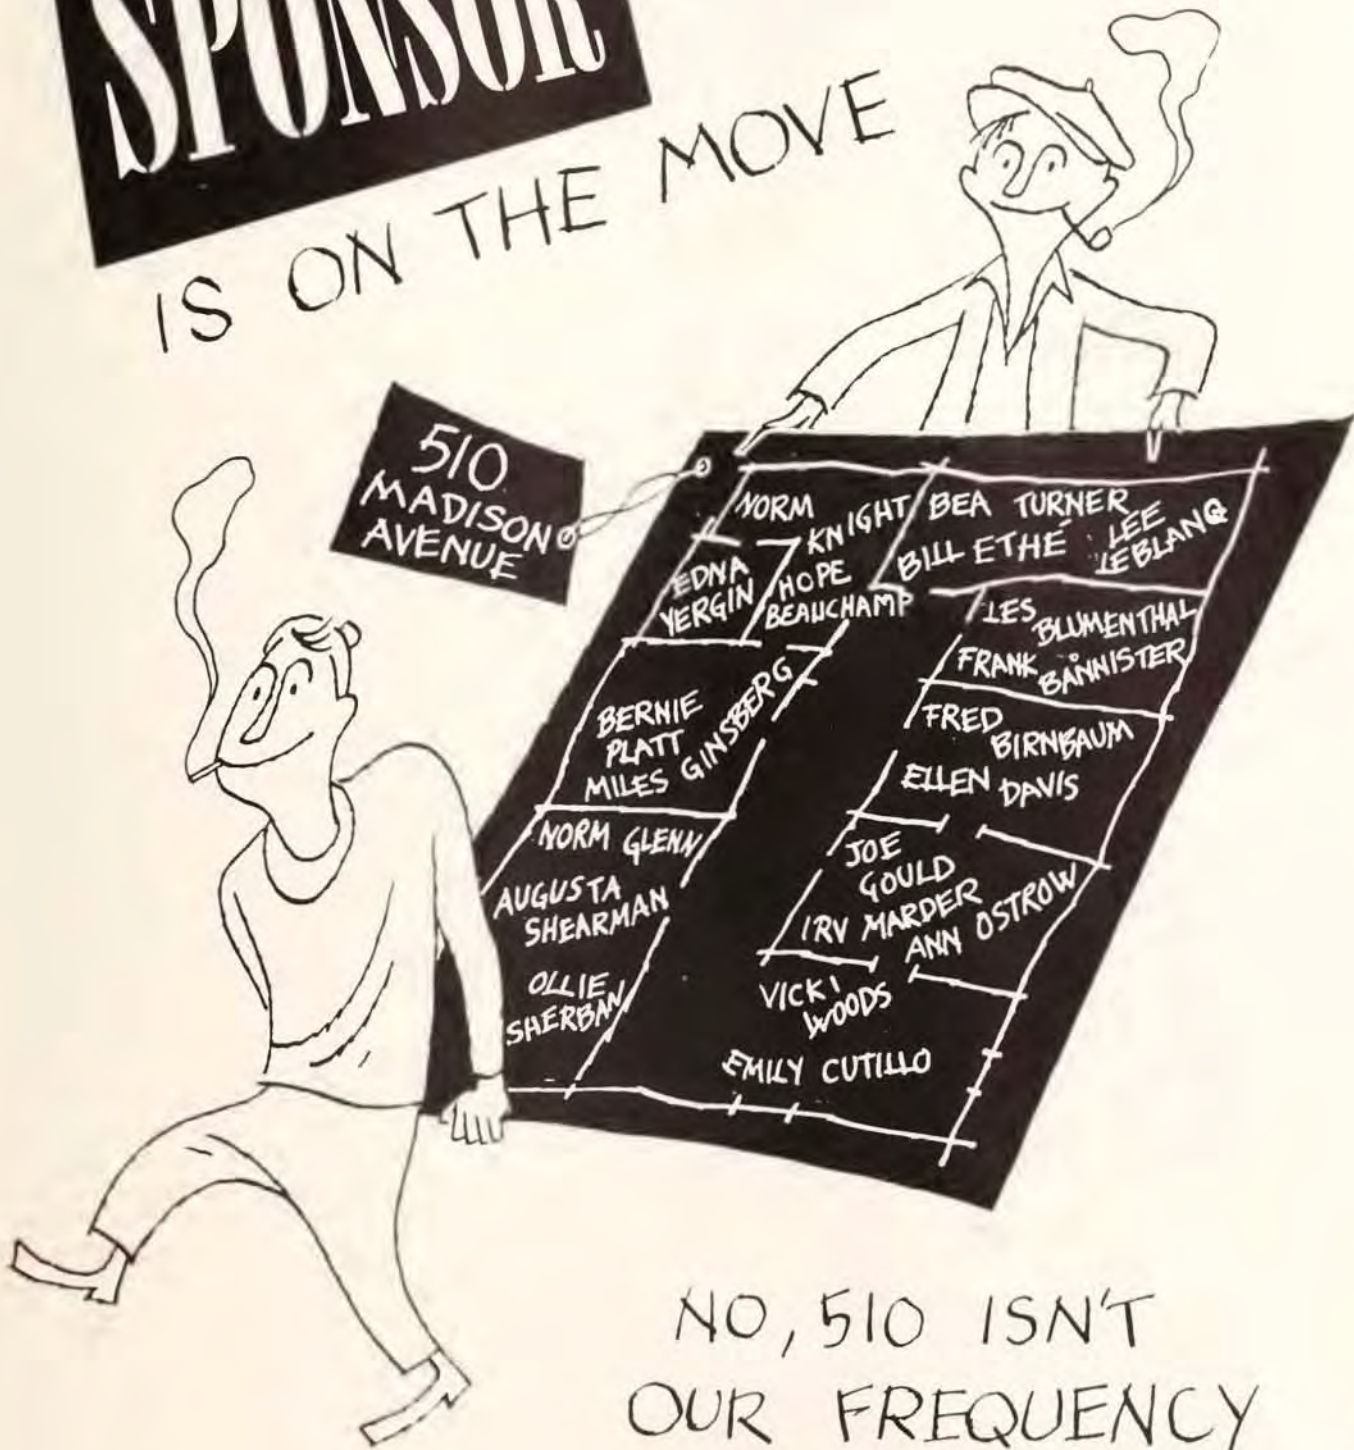 SPONSOR
IS ON THE MOVE
510
MADISON
AVENUE
NORM
KNIGHT
EDNA
YERGIN
HOPE
BEAUCHAMP
BEA TURNER
BILL ETHÉ
LEE
LEBLANG
LES
BLUMENTHAL
FRANK
BANNISTER
BERNIE
PLATT
MILES GINSBERG
FRED
BIRNBAUM
ELLEN DAVIS
NORM GLENN
AUGUSTA
SHEARMAN
OLLIE
SHERBAN
JOE
GOULD
IRV MARDER
ANN OSTROW
VICKI
WOODS
EMILY CUTILLO
NO, 510 ISN'T
OUR FREQUENCY